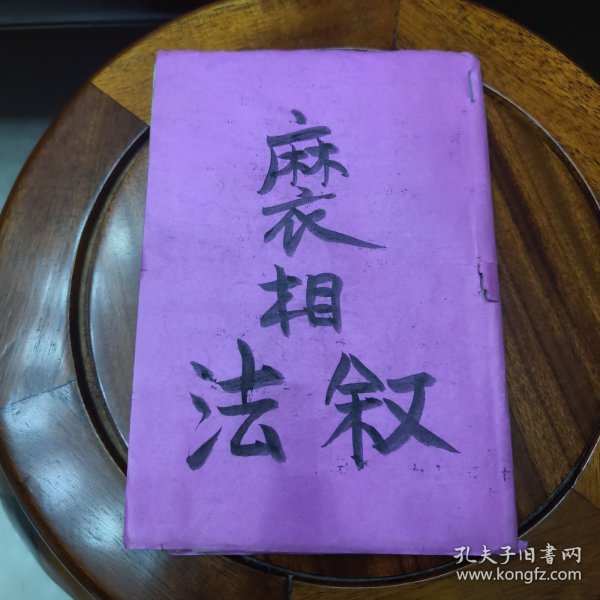 麻衣
相
法叙
孔夫子旧書网
www.kongfz.com